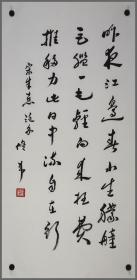 昨夜江邊春水生艨艟
巨艦一毛輕向來枉費
推移力此日中流自在行
宋朱熹